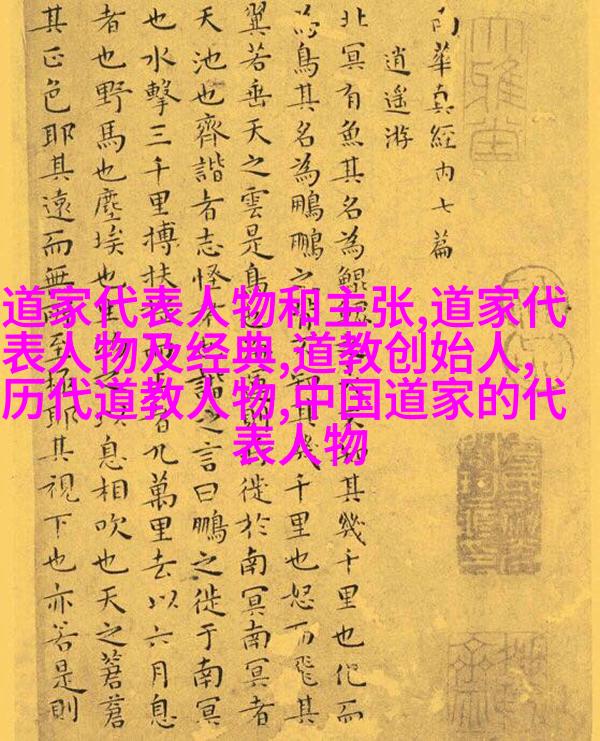 道家代表人物和主张,道家代
表人物及经典,道教创始人,
历代道教人物,中国道家的代
表人物
南華真經内七篇
逍遙游
北冥有魚其名為鯤其幾千里也化而
為鳥其名為鵬鵬之背其幾千里也怒而飛其
翼若垂天之雲是鳥也則徙於南冥南冥者
天池也齊諧者志怪者也諧之言曰鵬之徙于南冥
也水擊三千里搏扶而者九萬里去以六月息
者也野馬也塵埃也生物之以息相吹也天之蒼蒼
其正色耶其遠而無所至極耶其視下也亦若是則